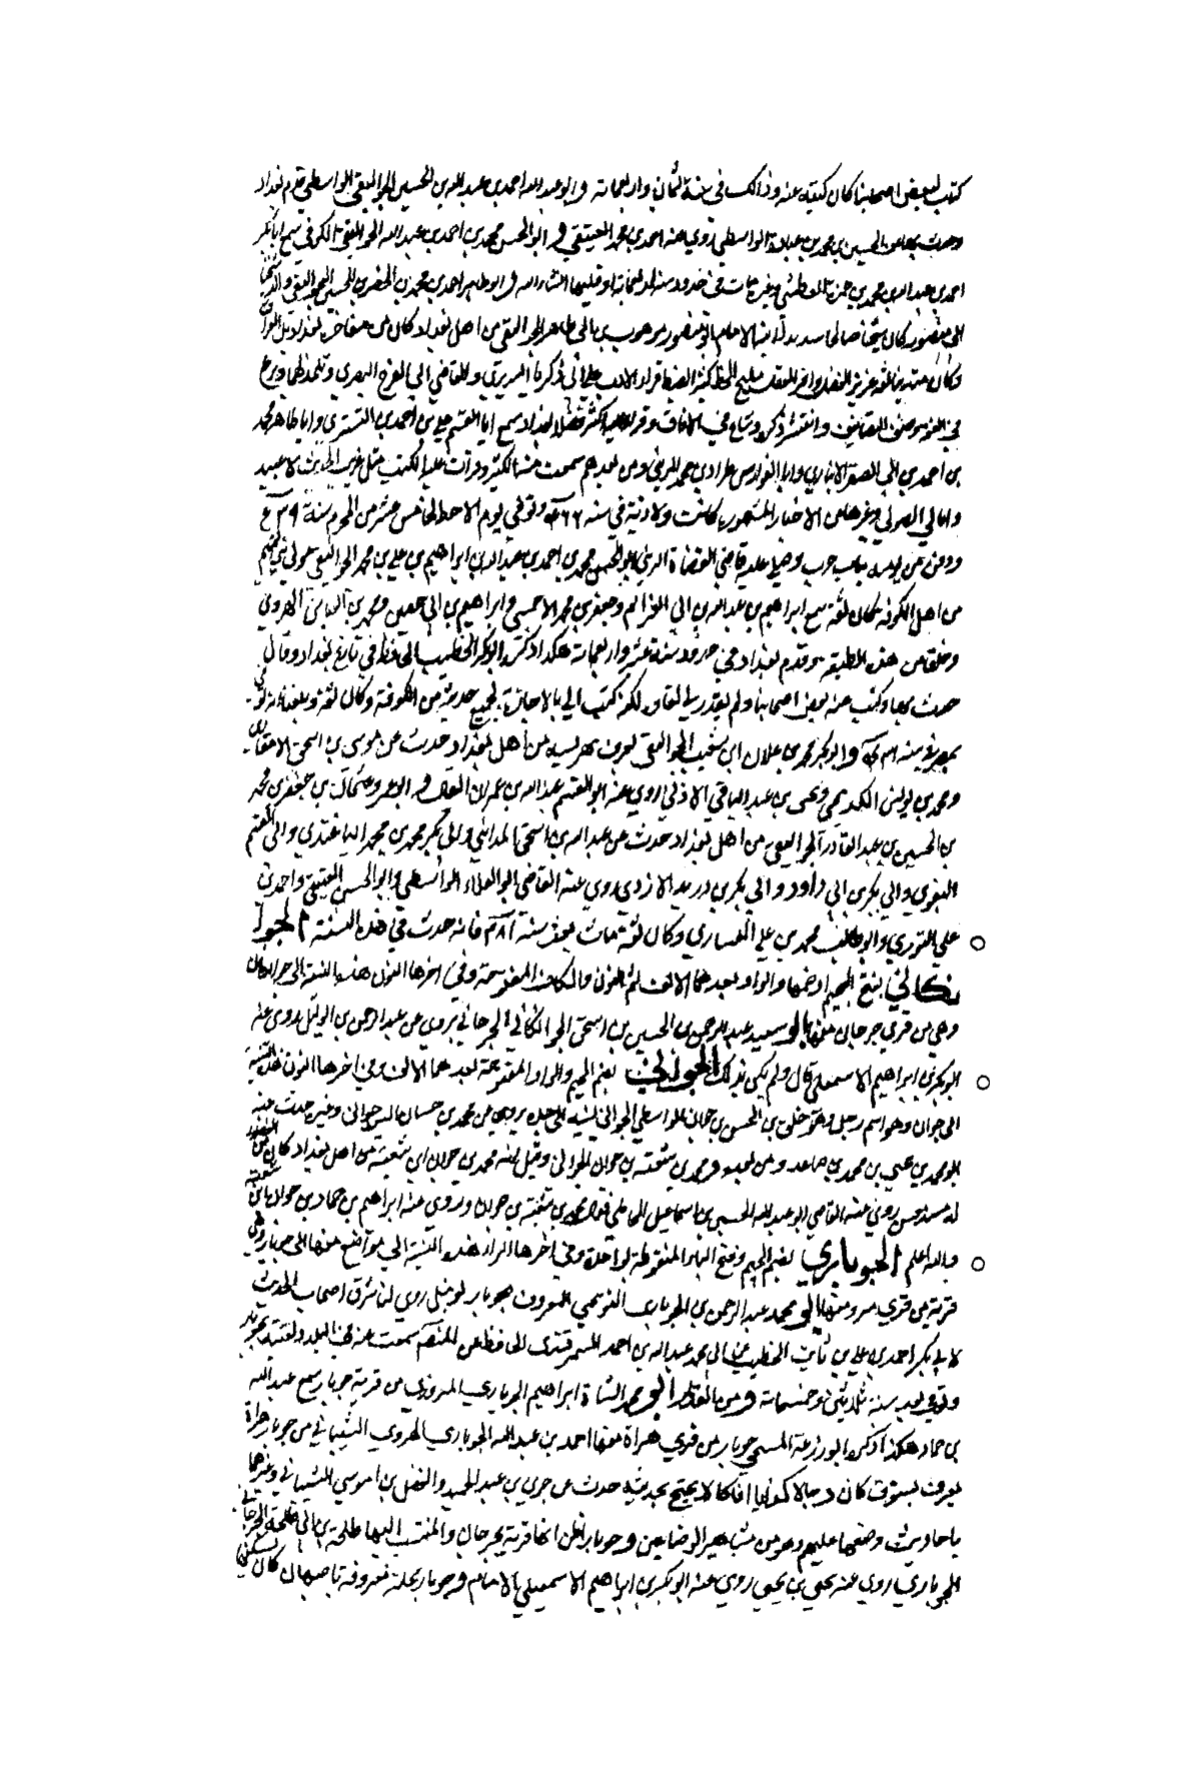 كتب لبعض اصحابنا كان كتبته عنه وذالك في سنة ثمان واربعماية وابو عبد الله احمد بن عبد الله بن الحسين الجواليقي الواسطي قدم بغداد
وحدث بها عن الحسين بن محمد بن عبادة الواسطي روى عنه احمد بن محمد العتيقي وابو الحسن محمد بن احمد بن عبد الله الجواليقي الكوفي سمع ابا بكر
احمد بن عبد الله بن محمد بن حمزة وغيره مات في حدود سنة او قبلها ان شاء الله وابو طاهر احمد بن محمد بن الخضر بن الحسين الجواليقي والد شيخنا
ابي منصور كان شيخا صالحا سديدا ابنه الامام ابو منصور موهوب بن ابي طاهر الجواليقي من اهل بغداد كان من مفاخر بغداد بل العراق
وكان متدينا ثقة غزير الفضل وافر العقل مليح الخط كثير الضبط قرا الادب على ابي زكريا التبريزي والقاضي ابي الفرج البصري وتلمذ لهما وبرع
في اللغة وصنف التصانيف وانتشر ذكره وشاع في الافاق وقرا عليه اكثر فضلا بغداد سمع ابا القسم علي بن احمد بن التستري وابا طاهر محمد
بن احمد بن ابي الصقر الانباري وابا الفوارس طراد بن محمد الزيني ومن بعدهم سمعت منه الكثير وقرات عليه الكتب مثل غريب الحديث لابي عبيد
وامالي الصولي وغيرها من الاخبار المشهورة كانت ولادته في سنة ٤٦٦ وتوفي يوم الاحد الخامس عشر من المحرم سنة
ودفن من يومه بباب حرب وصلى عليه قاضي القضاة الزيني ابو الحسن محمد بن احمد بن عبد الله بن ابراهيم بن علي بن محمد الجواليقي مولى بني تميم
من اهل الكوفة كان ثقة سمع ابراهيم بن عبد الله بن ابي العزائم وجعفر بن محمد الاحمسي وابراهيم بن ابي حصين ومحمد بن العباس الهروي
وخلق من هذه الطبقة وقدم بغداد في حدود سنة عشر واربعماية هكذا ذكره ابو بكر الخطيب الحافظ في تاريخ بغداد وقال
حدث بها وكتب عنه بعض اصحابنا ولم يقدر لي لقاه لكنه كتب الي بالاجازة بجميع حديثه من الكوفة وكان ثقة وبلغنا انه توفي
بمصر في سنة وابو بكر محمد بن علان ابن شعيب الجواليقي يعرف من اهل بغداد حدث عن موسى بن اسحق الانصاري
ومحمد بن يونس الكديمي ويحيى بن عبد الباقي الاذني روى عنه ابو القسم عبد الله بن عمران العلاف وابو عمرو عثمان بن جعفر بن محمد
بن الحسين بن عبد القادر الجواليقي من اهل بغداد حدث عن عبد الله بن اسحق المدايني وابي بكر محمد بن محمد الباغندي وابي القسم
البغوي وابي بكر بن ابي داود وابي بكر بن دريد الازدي روى عنه القاضي ابو العلاء الواسطي وابو الحسن العتيقي واحمد بن
علي التوزي وابو طالب محمد بن علي العشاري وكان ثقة مات بعد سنة ٣٨١ فانه حدث في هذه السنة الجوا
نكاني بفتح الجيم او ضمها والواو بعدهما الالف ثم النون والكاف المفتوحة وفي اخرها النون هذه النسبة الى جوانكان
وهي من قرى جرجان منها ابو سعيد عبد الرحمن بن الحسين بن اسحق الجوانكاني الجرجاني يروي عن عبد الرحمن بن الوليد روى عنه
ابو بكر بن ابراهيم الاسمعيلي قال ولم يكن بذلك الجواني بضم الجيم والواو المفتوحة بعدهما الالف وفي اخرها النون هذه النسبة
الى جوان وهو اسم رجل وهو خلق بن الحسن بن جوان الواسطي الجواني نسبة الى جده يروي عن محمد بن حسان البرجواني وغيره حدث عنه
ابو محمد يحيى بن محمد بن صاعد ومن بعده ومحمد بن شعبة بن جوان الجواني وقيل انه محمد بن جوان ابن شعبة من اهل بغداد كان من
له مسند حسن روى عنه القاضي ابو عبد الله الحسين بن اسماعيل المحاملي فقال محمد بن شعبة بن جوان وروى عنه ابراهيم بن حماد بن جوان بن شعبة
والله اعلم الجوباري بضم الجيم وفتح الباء المنقوطة بواحدة وفي اخرها الراء هذه النسبة الى مواضع منها الى جوبار وهي
قرية من قرى مرو ومنها ابو محمد عبد الرحمن بن الجوباري البوينجي المعروف بجوبار بوينك روى لنا شرف اصحاب الحديث
لابي بكر احمد بن علي بن ثابت الخطيب عن ابي محمد عبد الله بن احمد السمرقندي الحافظ عن المصنف سمعت منه في البلد ولقيته بجوبار
وتوفي بعد سنة ثلاثين وخمسماية ومن القدماء ابو محمد الشاه ابراهيم الجوباري المروزي من قرية جوبار سمع عبد الله
بن حماد هكذا ذكره ابو زرعة المسمى جوبار من قرى هراة منها احمد بن عبد الله الجوباري الهروي الشيباني من جوبار هراة
يعرف بستوق كان دجالا كذابا افاكا لا يحتج بحديثه حدث عن جرير بن عبد الحميد والفضل بن موسى الشيباني وغيرهما
باحاديث وضعها عليهم وهو من مشاهير الوضاعين وجوبار اظن انها قرية بجرجان والمنتسب اليها طلحة بن ابي طلحة الجرجاني
الجوباري روى عنه يحيى بن يحيى روى عنه ابو بكر بن ابراهيم الاسمعيلي الامام وجوبار محلة معروفة باصبهان كان يسكنها